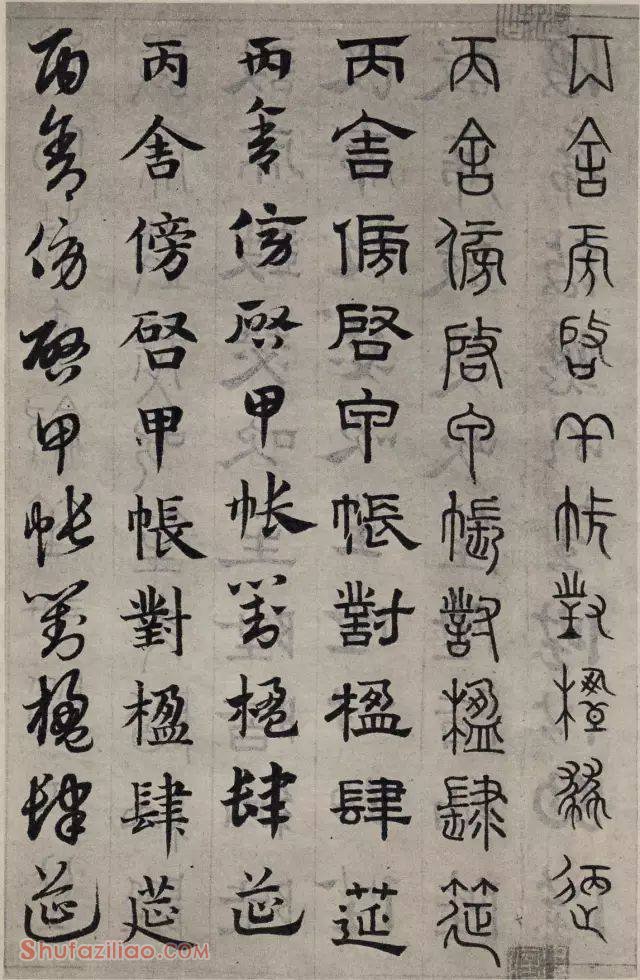 丙舍傍啓甲帳對楹肆筵
丙舍傍啓甲帳對楹肆筵
丙舍傍啓甲帳對楹肆筵
丙舍傍啓甲帳對楹肆筵
丙舍傍啓甲帳對楹肆筵
丙舍傍啓甲帳對楹肆筵
Shufaziliao.com